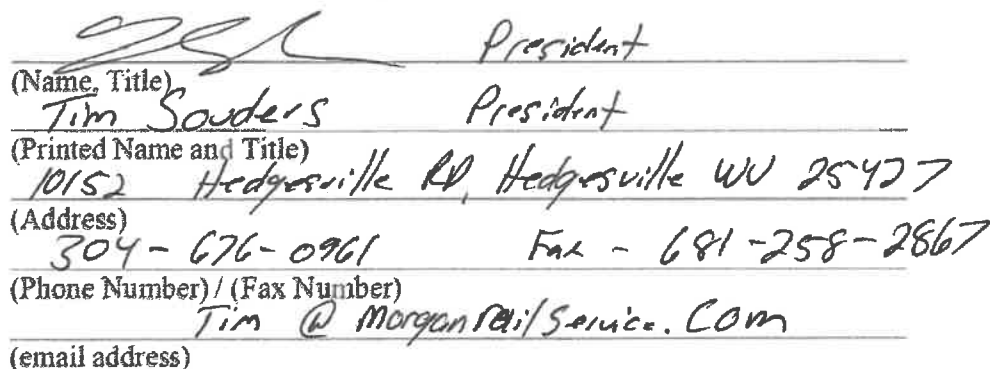 President
(Name, Title)
Tim Souders President
(Printed Name and Title)
10152 Hedgesville RD, Hedgesville WV 25427
(Address)
304-676-0961 Fax - 681-258-2867
(Phone Number) / (Fax Number)
Tim @ MorganrailService.Com
(email address)